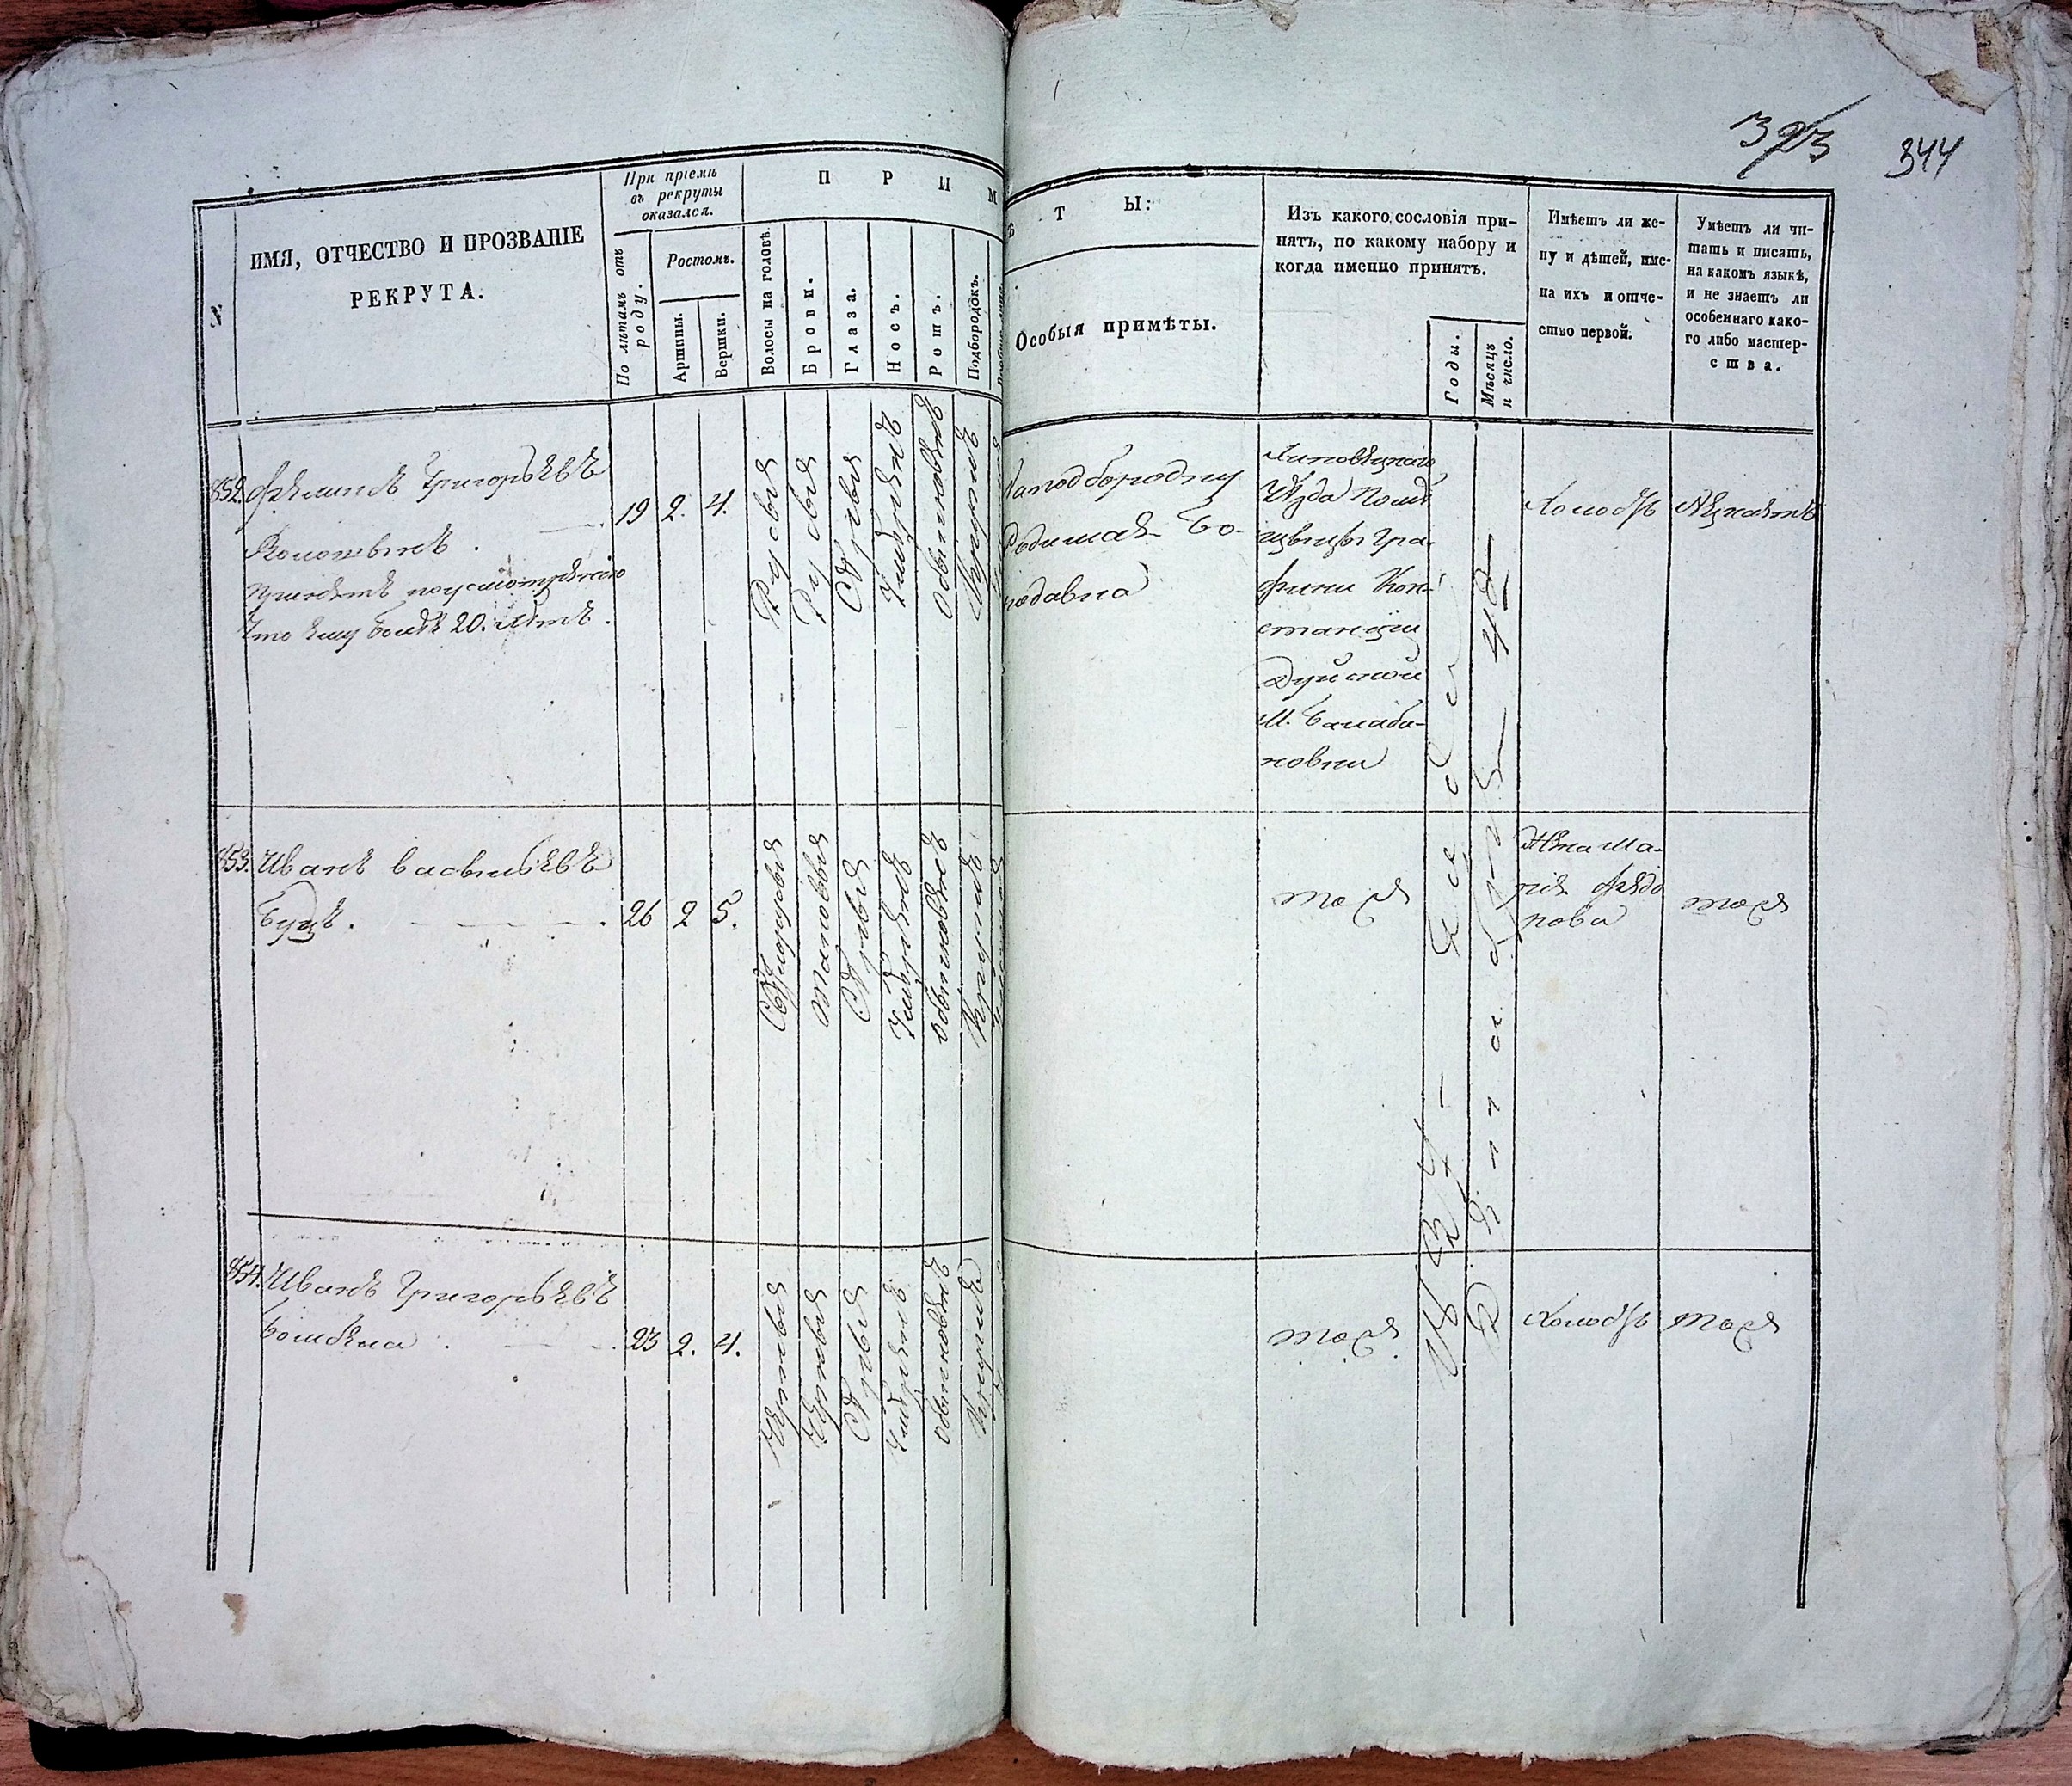 323 344
№
ИМЯ, ОТЧЕСТВО И ПРОЗВАНІЕ
РЕКРУТА.
При пріемѣ
въ рекруты
оказался.
По лѣтамъ отъ
роду.
Ростомъ.
Аршины.
Вершки.
П Р И М
Волосы на головѣ.
Брови.
Глаза.
Носъ.
Ротъ.
Подбородокъ.
Ѣ Т Ы:
Особыя примѣты.
Изъ какого сословія при-
нятъ, по какому набору и
когда именно принятъ.
Годы.
Мѣсяцъ
и число.
Имѣетъ ли же-
ну и дѣтей, име-
на ихъ и отче-
ство первой.
Умѣетъ ли чи-
тать и писать,
на какомъ языкѣ,
и не знаетъ ли
особеннаго како-
го либо мастер-
ства.
852.
Григорьевъ
принятъ поусмотрѣнію
что ему болѣе 20. лѣтъ.
19 2. 4.
Русыя
Русыя
Сѣрыя
Умѣренъ
Обыкновенъ
Кругловъ
На подбородку
Родимая бо-
родавка
Липовецкого
уѣзда Помѣ
щицы Гра-
фини Кон-
станціи
М. Балаба-
новки
Холостъ
Незнаетъ
853.
Иванъ Васильевъ
Буцъ.
26 2 5.
Свѣтлорусыя
Таковыя
Сѣрыя
Умѣренъ
Обыкновенъ
Круглъ
тоже
Жена Ма-
рія Федо
рова
тоже
854.
Иванъ Григорьевъ
23 2. 4.
Черныя
Черныя
Сѣрыя
Умѣренъ
Обыкновенъ
Круглъ
тоже
Холостъ
тоже